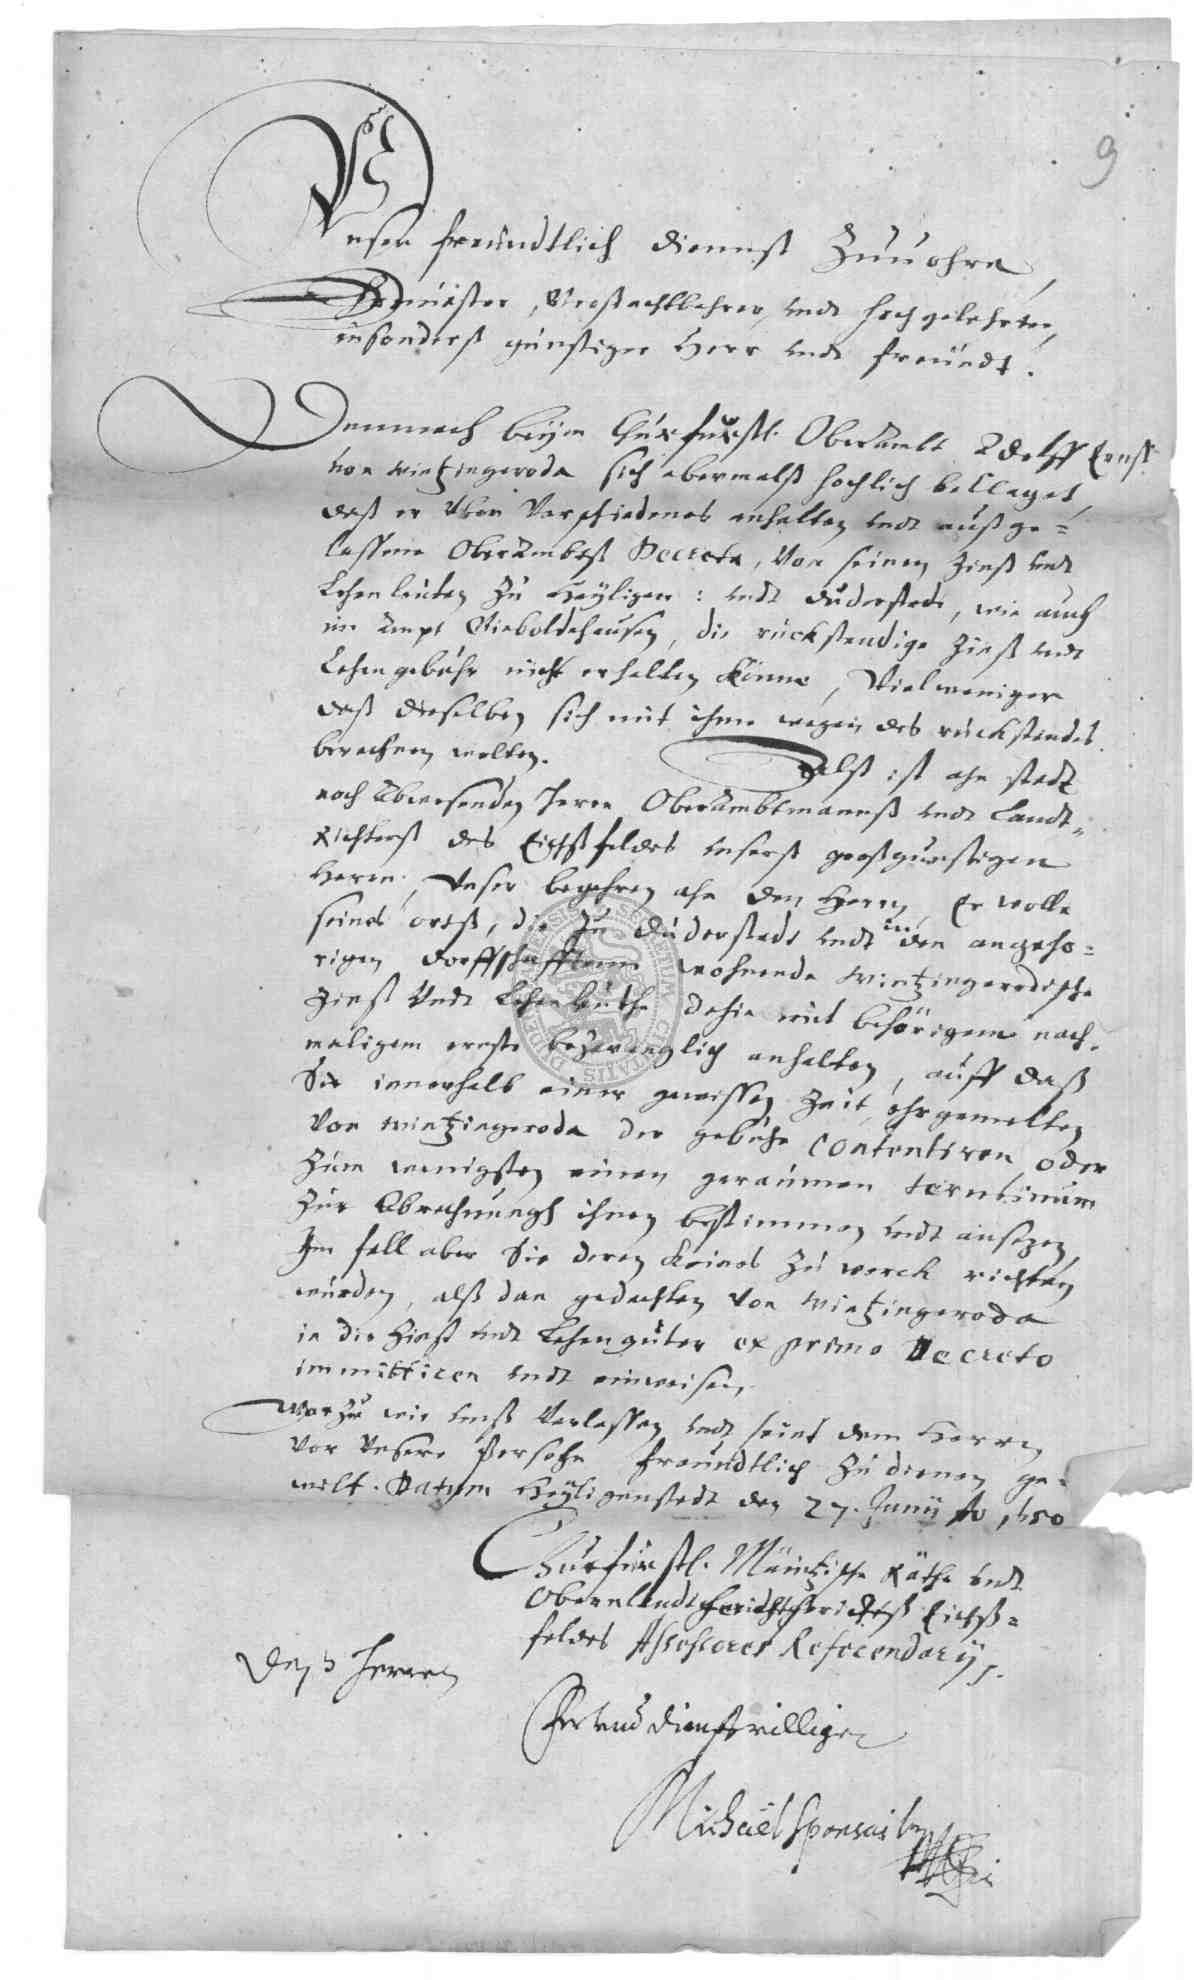 9
Unser freundtlich dienst Zuuohrn,
Ehrnuester, Großachtbahrer undt hochgelehrter,
insonders günstiger Herr undt freundt.
Demnach beÿm Churfurstl. OberAmbt Adolff Ernst
von Wintzingeroda sich abermalß hochlich beclaget,
daß er Vber Verschiedenes anhalten undt außge=
lassene OberAmbtß Decreta, Von seinen Zinß undt
Lehenleuten Zu Heÿligen: undt Duderstadt, wie auch
im Ampt Gieboldehausen, die rückstendige Zinß undt
Lehengebühr nicht erhalten Könne, Vielweniger
daß dieselben sich mit ihme wegen des rückstandes
berechnen wolten. Alß ist ahn stadt
noch Abwesenden Herrn OberAmbtmannß undt Landt=
Richterß des Eichßfeldes Unserß großgunstigen
Herrn, Unser begehren ahn den Herrn, Er wolle
seines ortß, die Zu Duderstadt undt in den angeho=
rigen Dorffschafften wohnende Wintzingerodische
Zinß Undt Lehenleuthe dahin mit behörigem noch=
maligem ernste bezwenglich anhalten, auff daß
Sie innerhalb einer gewissen Zeit, ehrgemelten
Von Wintzingeroda der gebühr contentiren oder
Zum wenigsten einen geraumen terminum
Zur Abrechnungh ihnen bestimmen undt ansezen,
Im fall aber Sie deren Keines Zu werck richten
würden, alß dan gedachten Von Wintzingeroda
in die Zinß undt Lehengüter ex primo Decreto
immittiren undt einweisen,
Warzu wir unß Verlassen undt seint dem Herrn
Vor Unsere Persohn freundtlich Zu dienen ge=
wilt. Datum Heÿligenstadt den 27. Junij Ao 1650
Churfürstl. Mäintzische Räthe undt
Oberlandtgerichtß Eichß=
feldes Assessores Referendarÿ.
Deß Herren
dienstwillige
Michaël